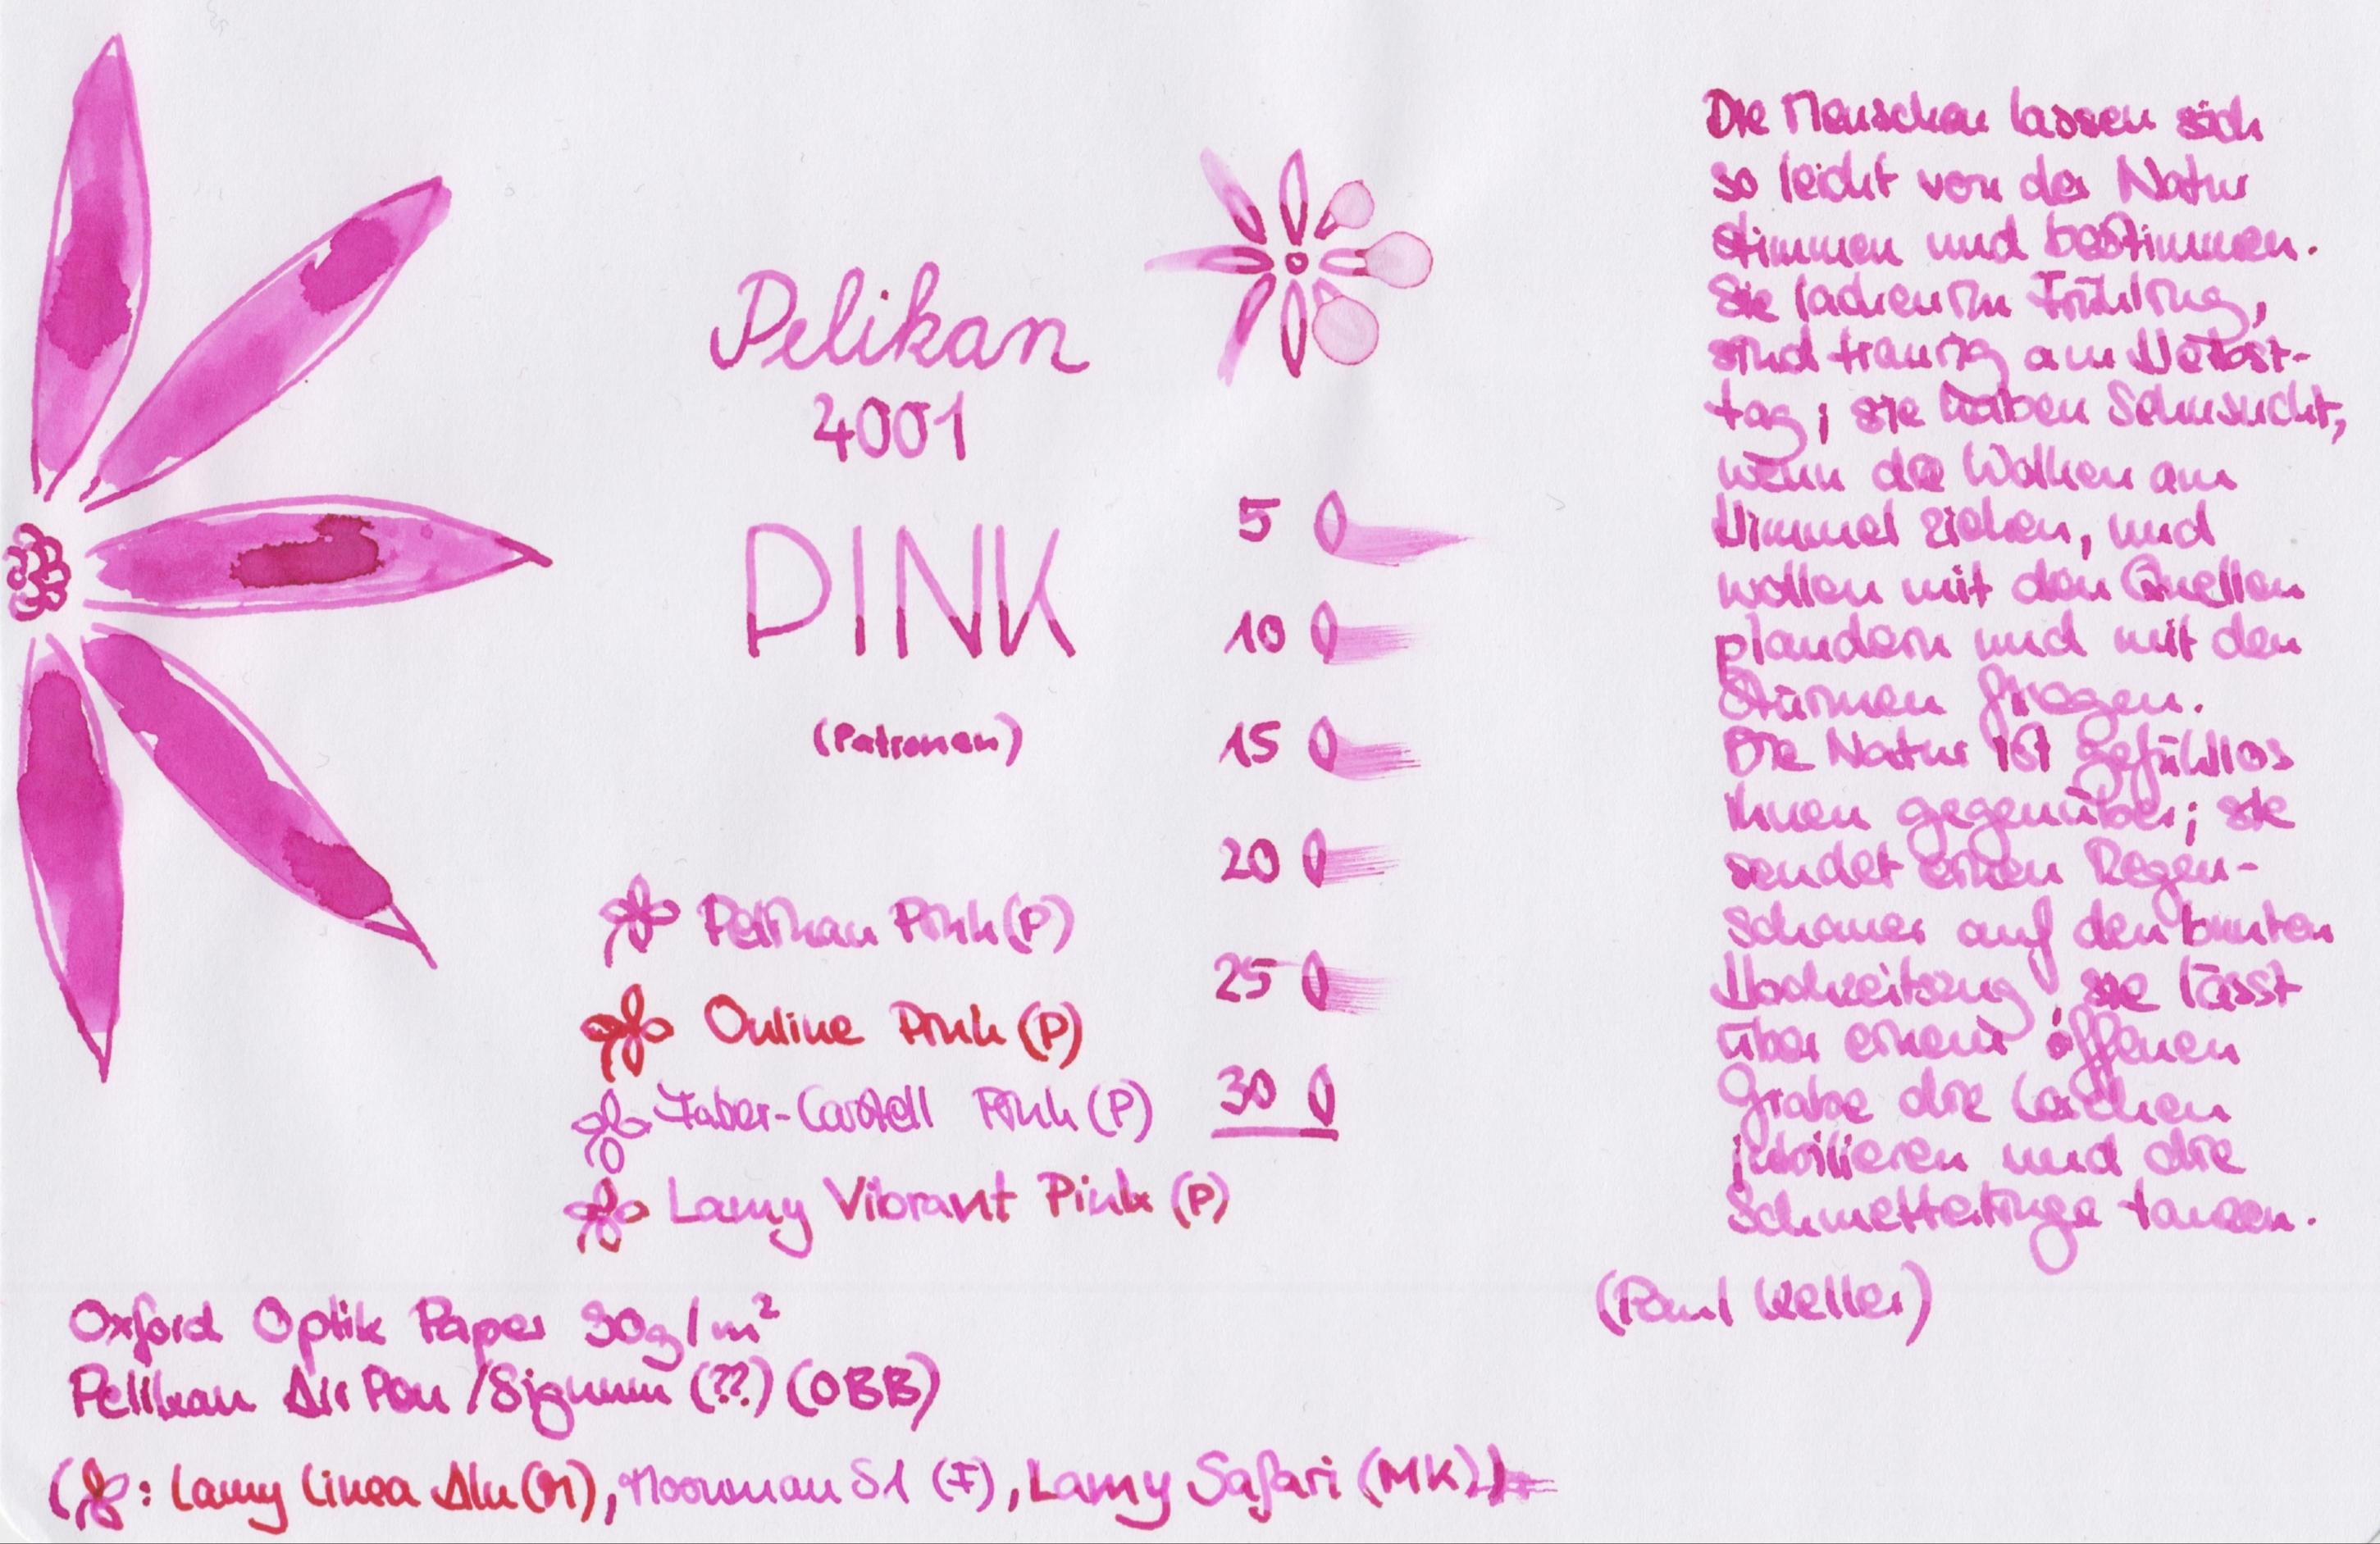 Pelikan
4001
PINK
(Patronen)
5
10
15
20
25
30
Pelikan Pink (P)
Online Pink (P)
Faber-Castell Pink (P)
Lamy Vibrant Pink (P)
Oxford Optik Paper 90g/m²
Pelikan Air Pen / Signum (??) (OBB)
( : Lamy Linea Alu (M), Moonman S1 (F), Lamy Safari (MK))
Die Menschen lassen sich
so leicht von der Natur
stimmen und bestimmen.
Sie lachen im Frühling,
sind traurig am Herbst-
tag; sie haben Sehnsucht,
wenn die Wolken am
Himmel ziehen, und
wollen mit den Quellen
plaudern und mit den
Stürmen fliegen.
Die Natur ist gefühllos
ihnen gegenüber; sie
sendet einen Regen-
schauer auf den bunten
Hochzeitszug, sie lässt
über einem offenen
Grabe die Lerchen
jubilieren und die
Schmetterlinge tanzen.
(Paul Keller)